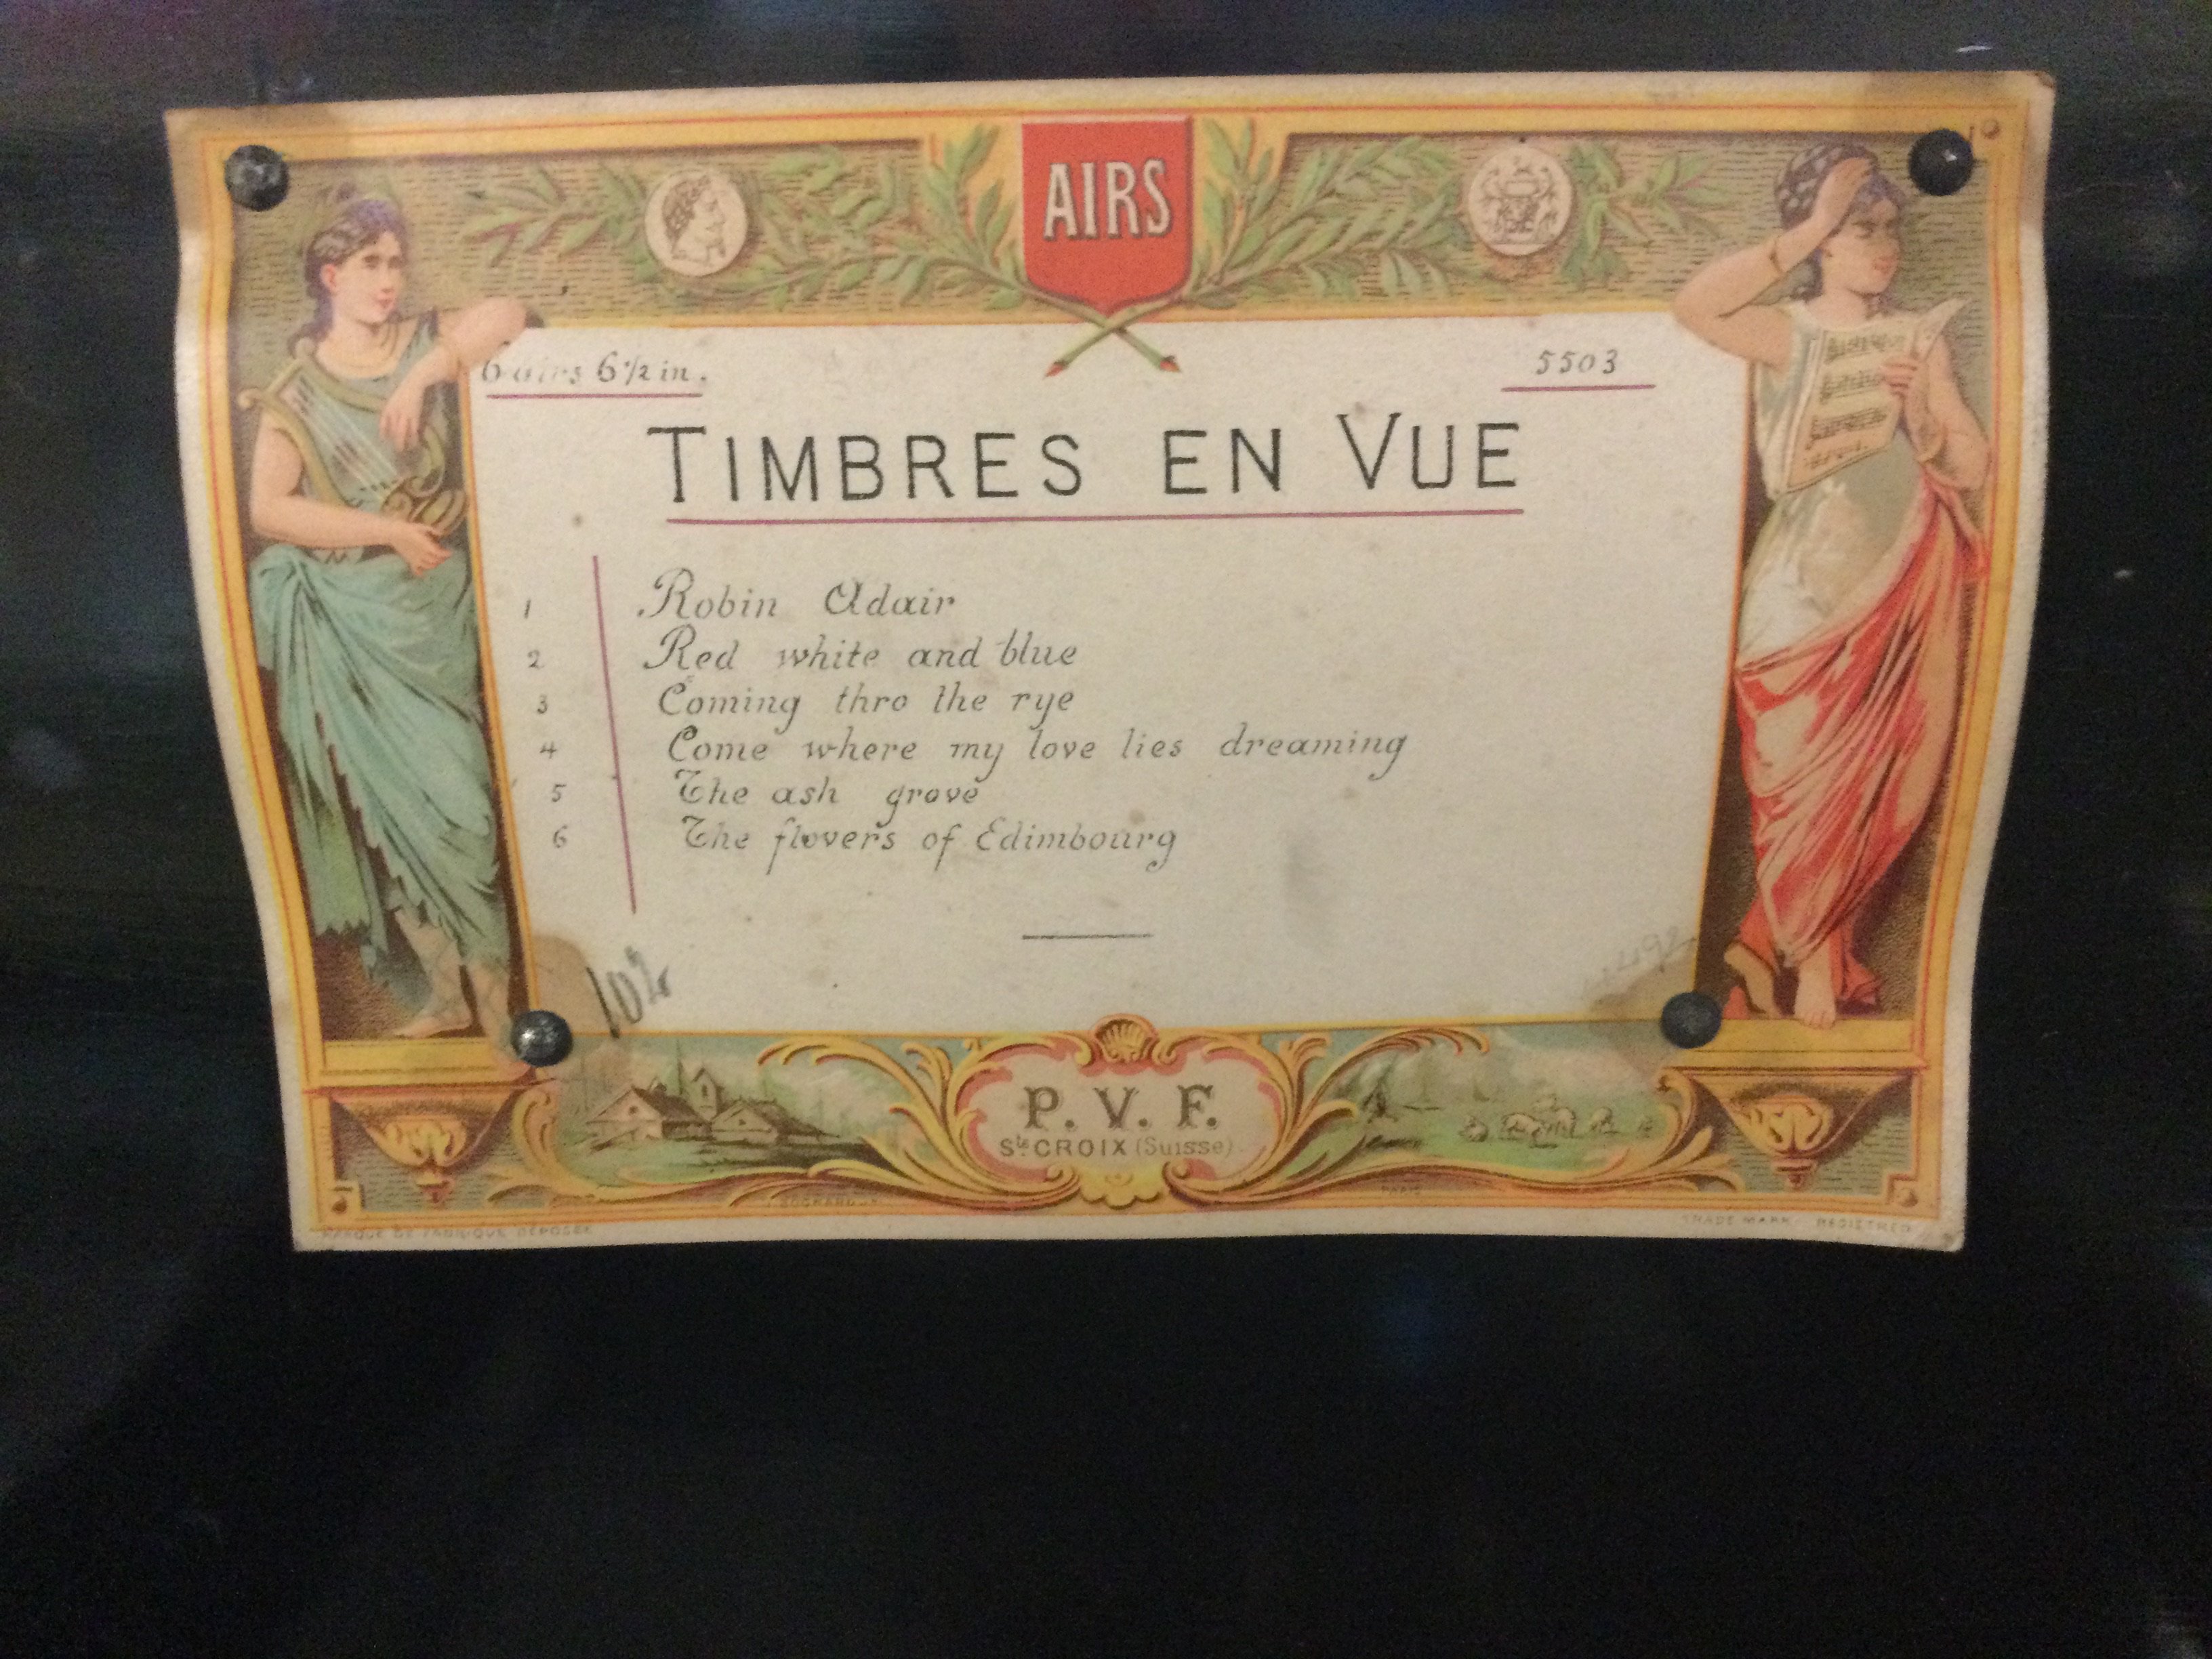 AIRS
6 airs 6 1/2 in.
5503
TIMBRES EN VUE
1 Robin Adair
2 Red white and blue
3 Coming thro the rye
4 Come where my love lies dreaming
5 The ash grove
6 The flovers of Edimbourg
102
P. V. F.
Ste CROIX (Suisse)
PARIS
MARQUE DE FABRIQUE DÉPOSÉE
TRADE MARK REGISTRED